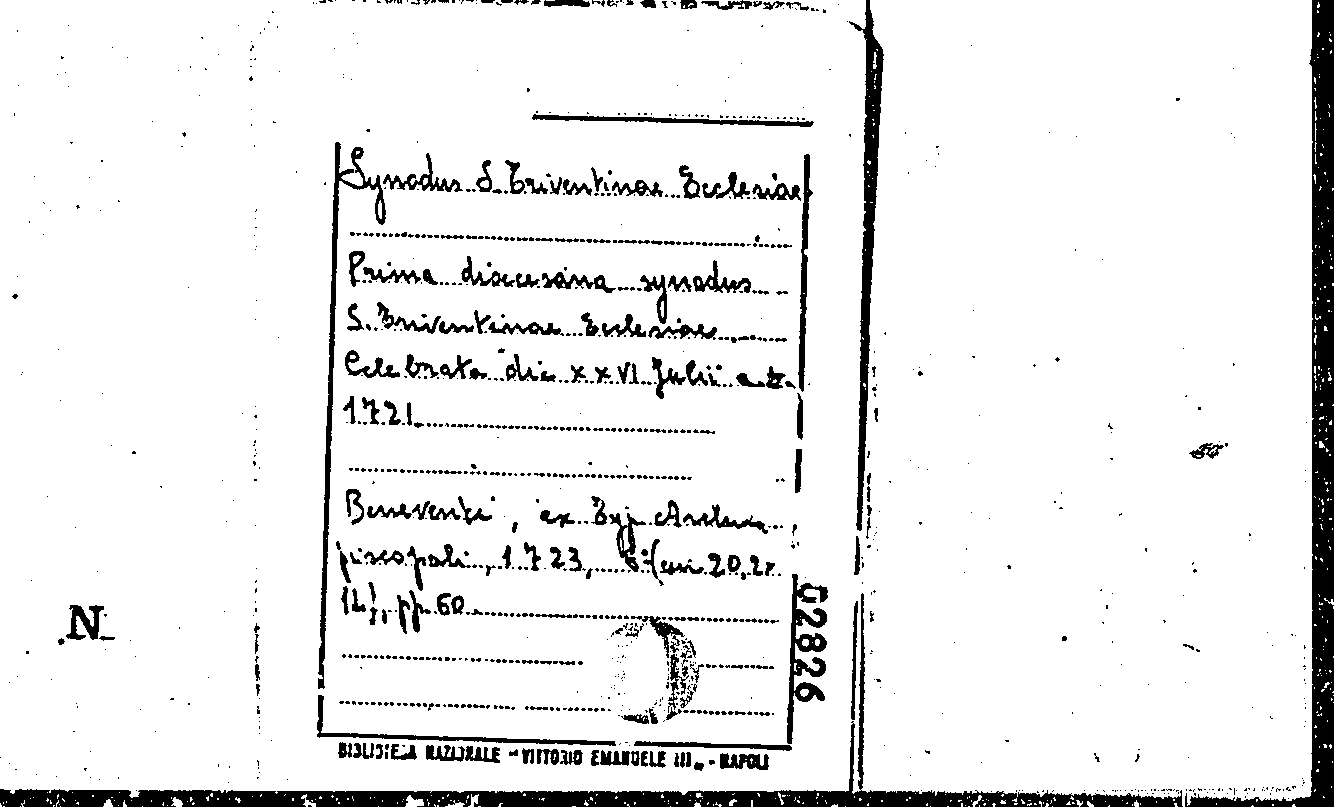 Synodus S. Triventinae Ecclesiae
Prima diocesana synodus
S. Triventinae Ecclesiae
Celebrata die XXVI Julii
1721.
Beneventi, ex Typ. Archie
piscopali, 1723, 8° (cm. 20,2x
14), pp. 60.
02826
N
BIBLIOTECA NAZIONALE "VITTORIO EMANUELE III" - NAPOLI